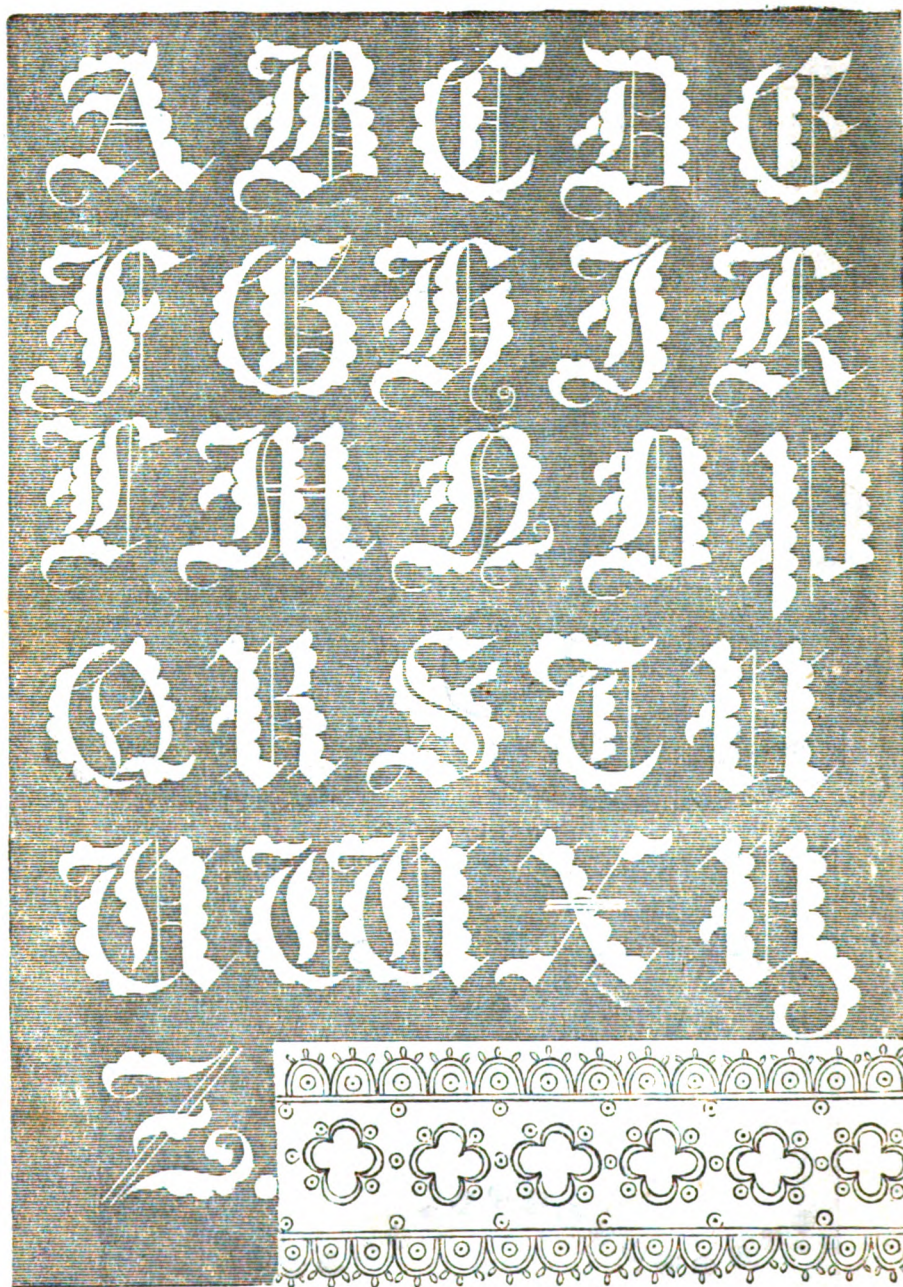 A B C D E
F G H I K
L M N O P
Q R S T U
V W X Y
Z.